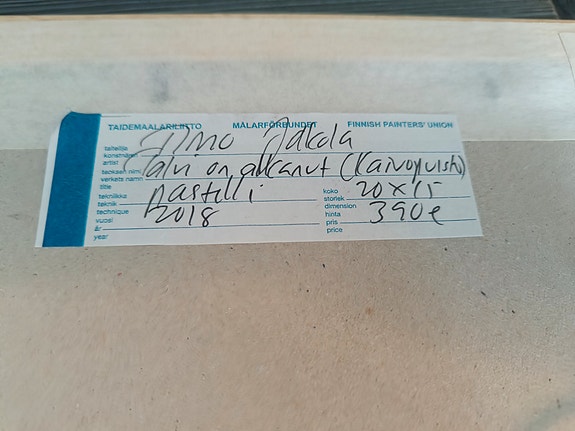 TAIDEMAALARILIITTO MÅLARFÖRBUNDET FINNISH PAINTERS' UNION
taiteilija
konstnären
artist
Jalola
teoksen nimi
verkets namn
title
Talvi on alkanut (Kaivopuisto)
tekniikka
teknik
technique
pastelli
koko
storlek
dimension
20x15
vuosi
år
year
2018
hinta
pris
price
390€